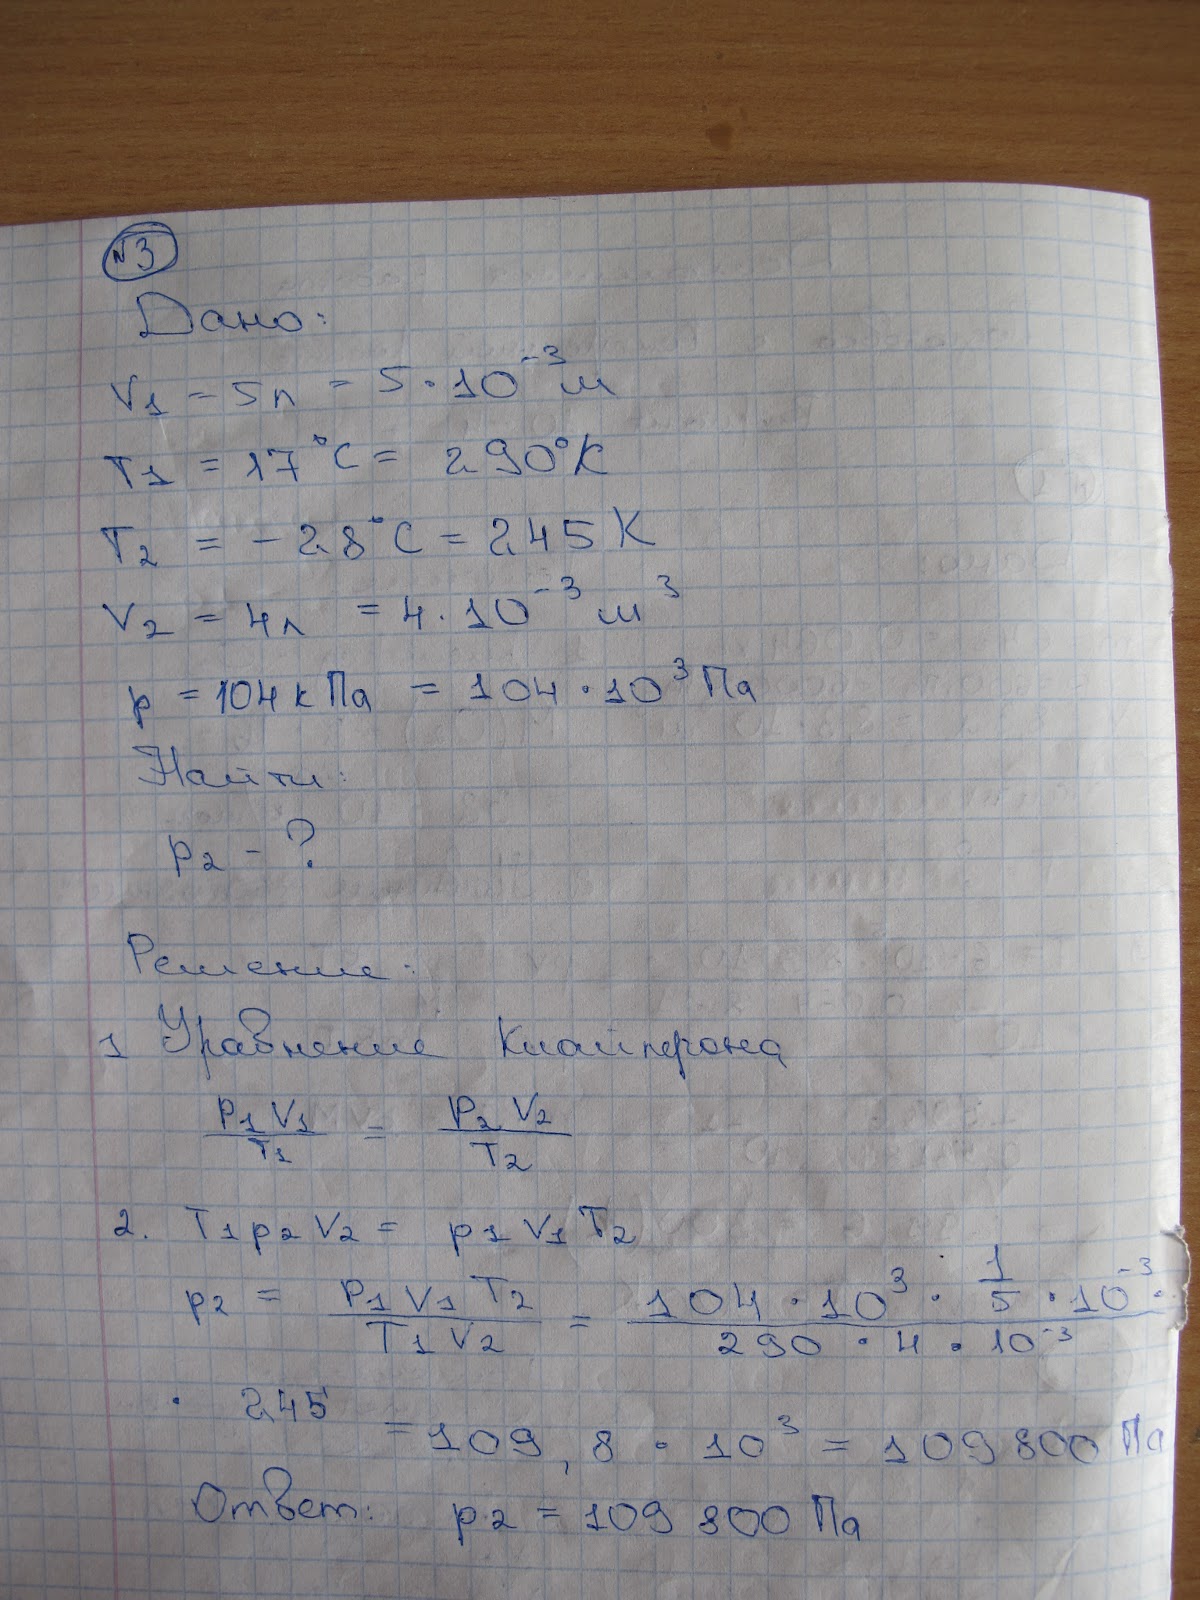 №3
Дано:
V1 = 5л = 5·10⁻³ м
T1 = 17°C = 290°K
T2 = -28°C = 245K
V2 = 4л = 4·10⁻³ м³
p = 104 кПа = 104·10³ Па
Найти:
p2 - ?
Решение:
1 Уравнение Клайперона
P1 V1 / T1 = P2 V2 / T2
2. T1 p2 V2 = p1 V1 T2
p2 = P1 V1 T2 / T1 V2 = 104·10³·1/5·10⁻³· / 290·4·10⁻³
· 245 = 109,8·10³ = 109 800 Па
Ответ: p2 = 109 800 Па